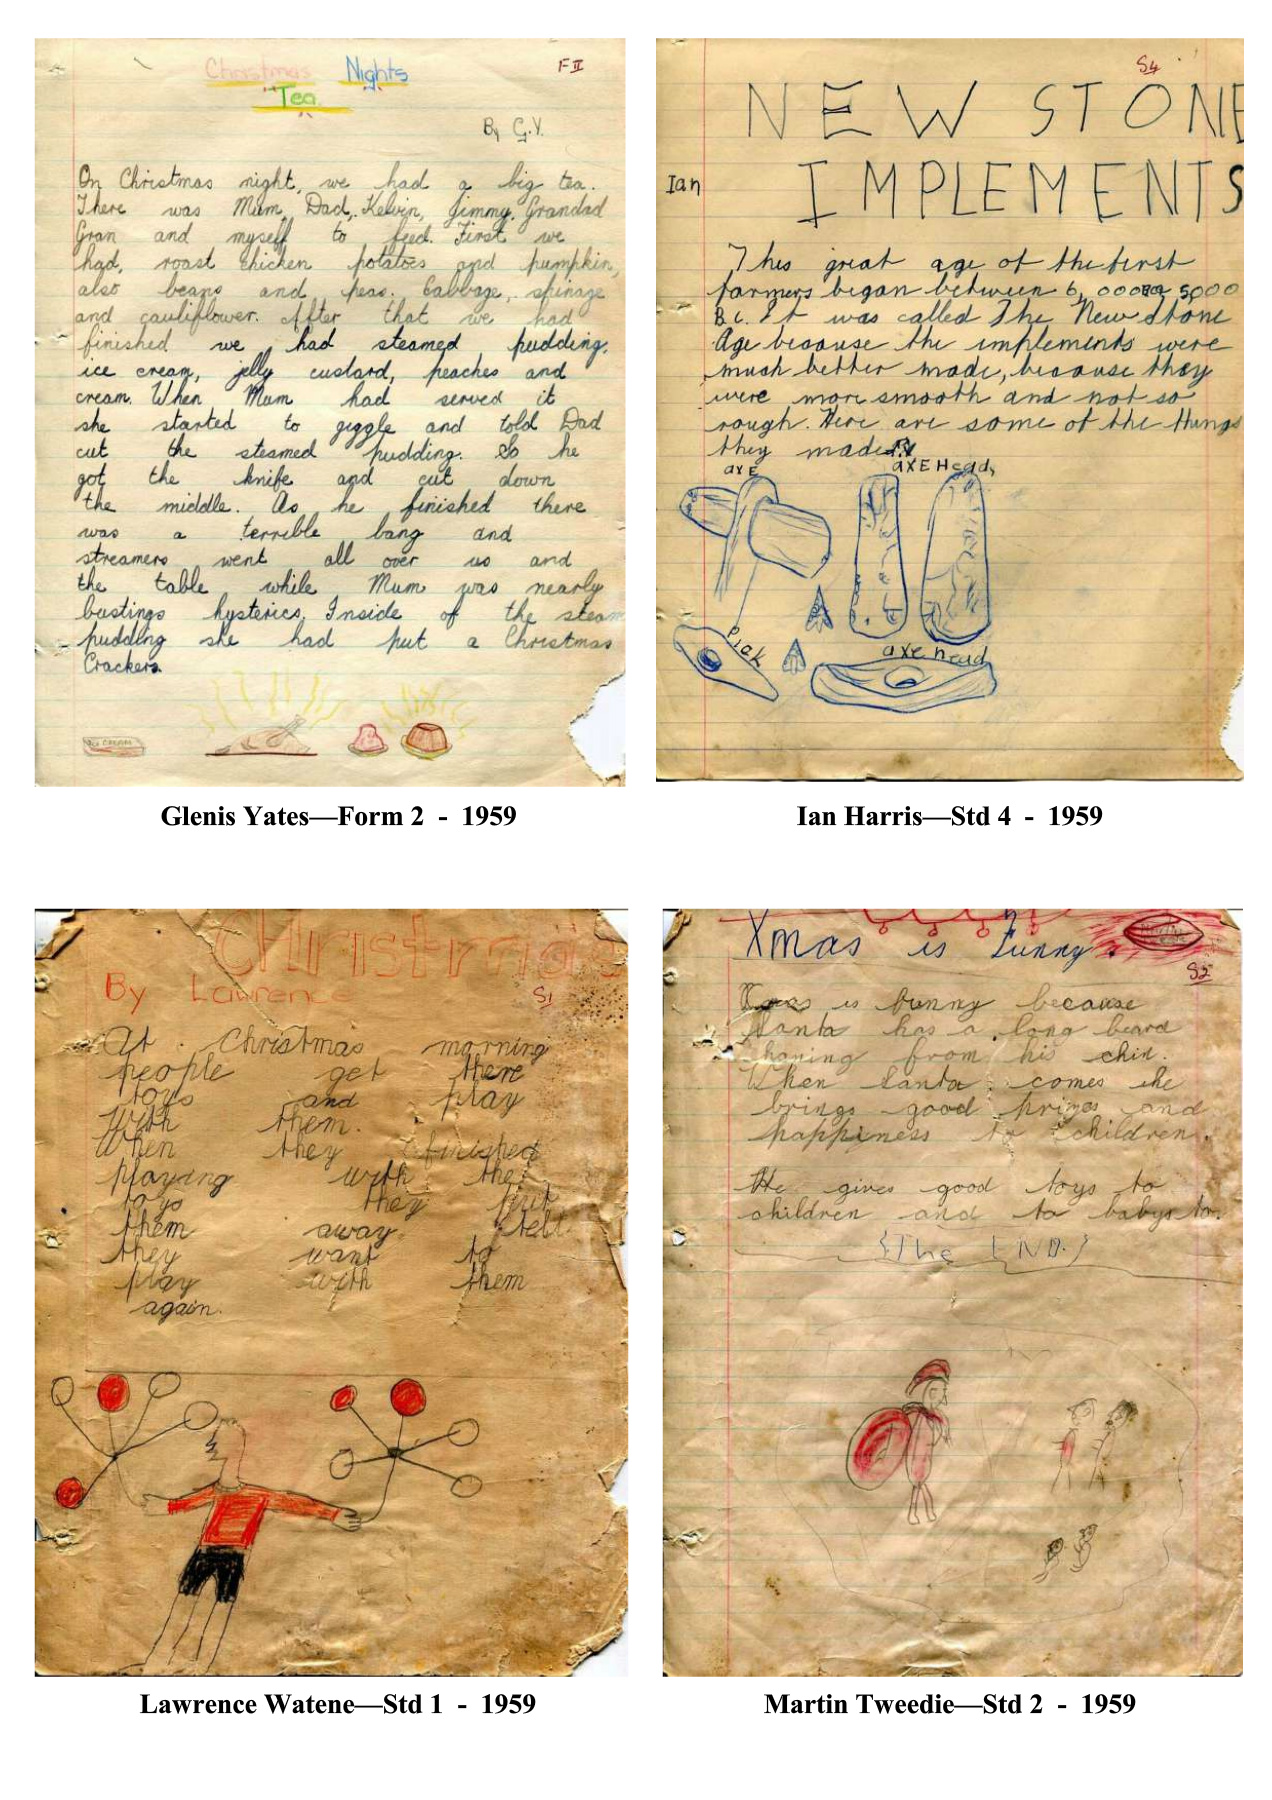 Christmas Nights
Tea.
F II
By G.Y.
On Christmas night, we had a big tea.
There was Mum, Dad, Kelvin, Jimmy, Grandad
Gran and myself to feed. First we
had, roast chicken potatoes and pumpkin,
also beans and peas. Cabbage, spinage
and cauliflower. After that we had
finished we had steamed pudding,
ice cream, jelly custard, peaches and
cream. When Mum had served it
she started to giggle and told Dad
cut the steamed pudding. So he
got the knife and cut down
the middle. As he finished there
was a terrible bang and
streamers went all over us and
the table while Mum was nearly
bustings hysterics. Inside of the steam
pudding she had put a Christmas
Crackers.
ice cream
Glenis Yates—Form 2 - 1959
S4
NEW STONE
Ian
IMPLEMENTS
This great age of the first
farmers began between 6,000 5000
B.C. it was called The New Stone
Age because the implements were
much better made, because they
were more smooth and not so
rough. Here are some of the things
they made
axE
axE Heads
Pick
axe head
Ian Harris—Std 4 - 1959
Christmas
By Lawrence
S1
At Christmas morning
people get there
toys and play
With them.
When they finished
playing with the
toys they put
them away
they want to
play with them
again.
Lawrence Watene—Std 1 - 1959
Xmas is Funny.
S2
Xmas is bunny because
Santa has a long beard
haning from his chin.
When Santa comes he
brings good prizes and
happiness to children.
He gives good toys to
children and to babys to.
{The END.}
Martin Tweedie—Std 2 - 1959